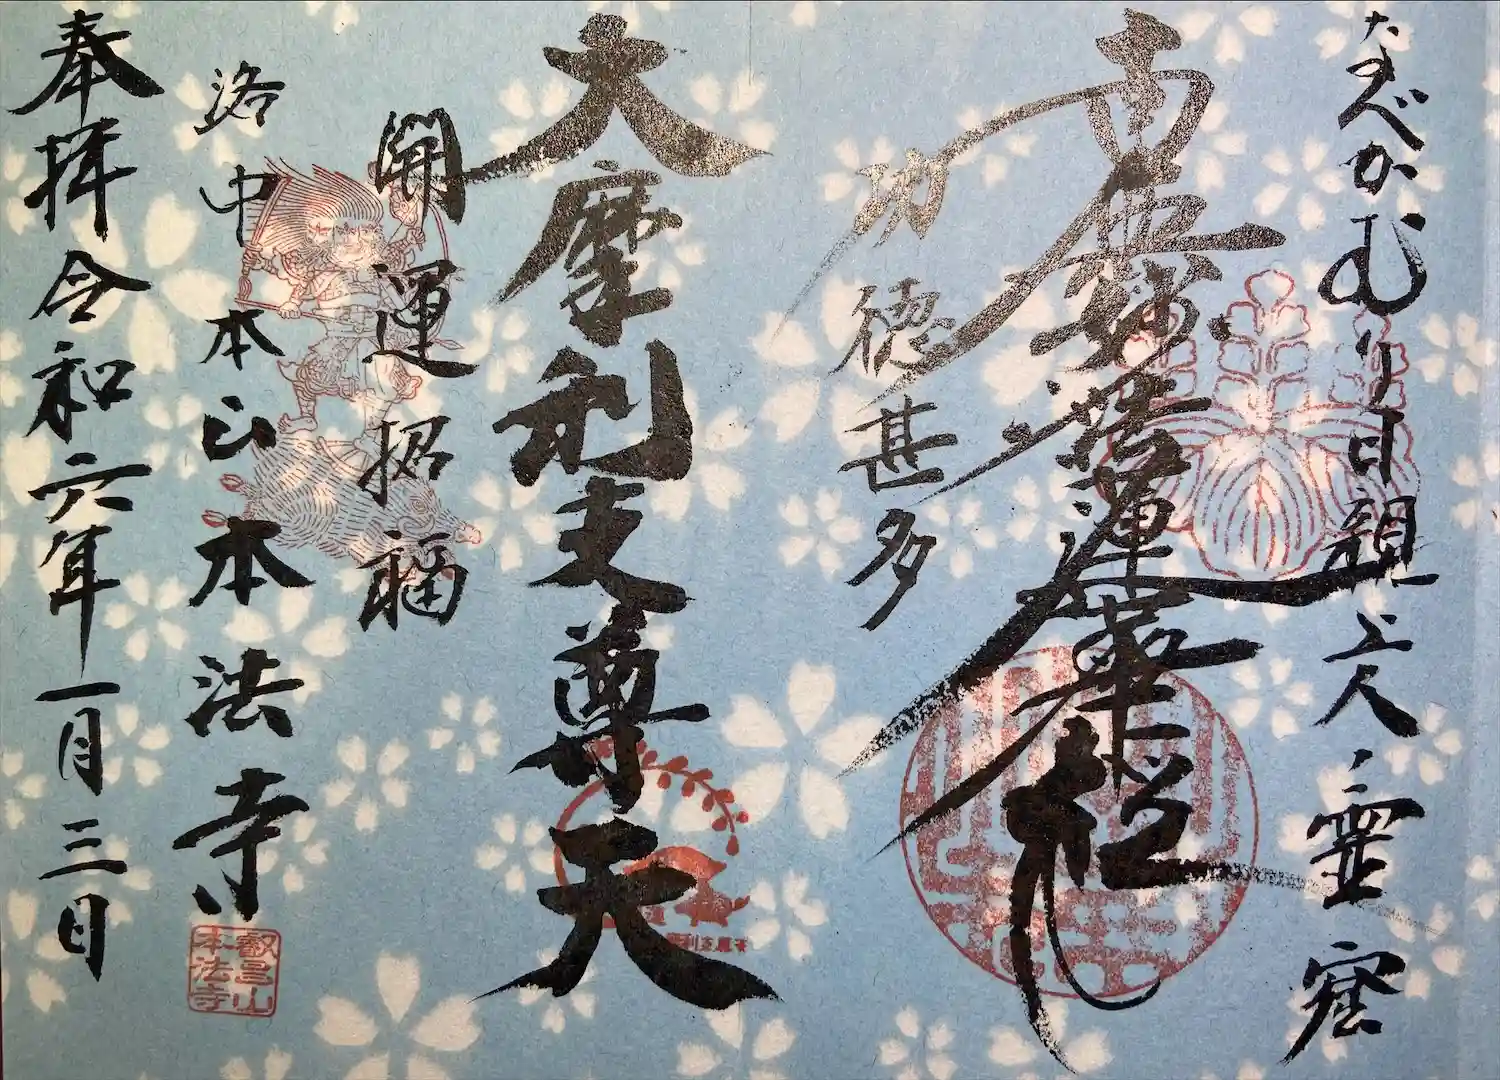 なべかむり日親上人霊窟
南無妙法蓮華経
功徳甚多
大摩利支尊天
開運招福
洛中本山本法寺
叡昌山
本法寺
奉拝令和六年一月三日